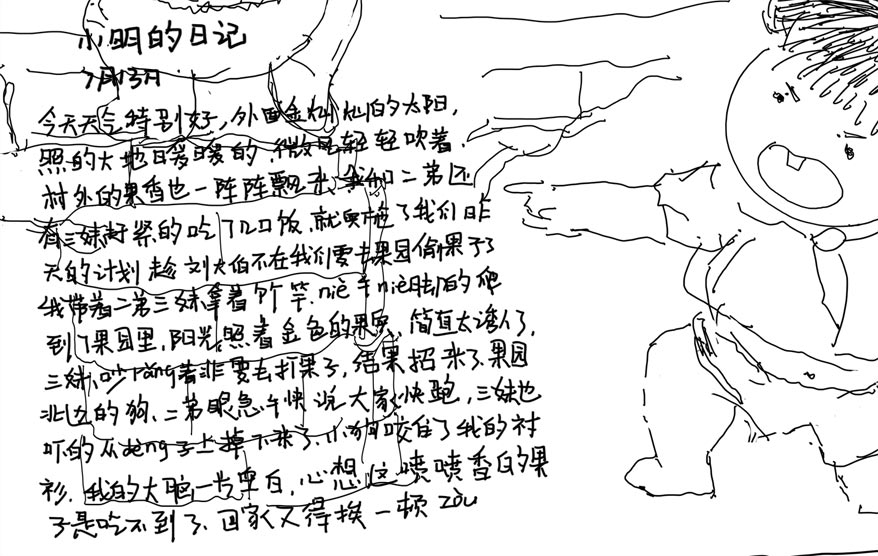 小明的日记
7月13日
今天天气特别好,外面金灿灿的太阳,
照的大地日暖日暖的,微风轻轻吹着,
村外的果香也一阵阵飘来,我和二弟还
有三妹赶紧的吃了几口饭,就实施了我们昨
天的计划趁刘大伯不在我们要去果园偷果子了
我带着二弟三妹拿着竹竿,niè手niè脚的爬
到了果园里,阳光照着金色的果实,简直太诱人了,
三妹吵rāng着非要去打果子,结果招来了果园
北边的狗,二弟眼急手快说大家快跑,三妹也
吓的从deng子上掉下来了,小狗咬住了我的衬
衫,我的大脑一片空白,心想这喷喷香的果
子是吃不到了,回家又得挨一顿zòu